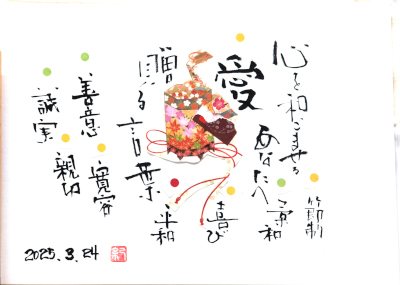 心を和ごませる
あなたへ
愛
贈る言葉
節制
柔和
喜び
平和
寛容
善意
親切
誠実
2025.3.24